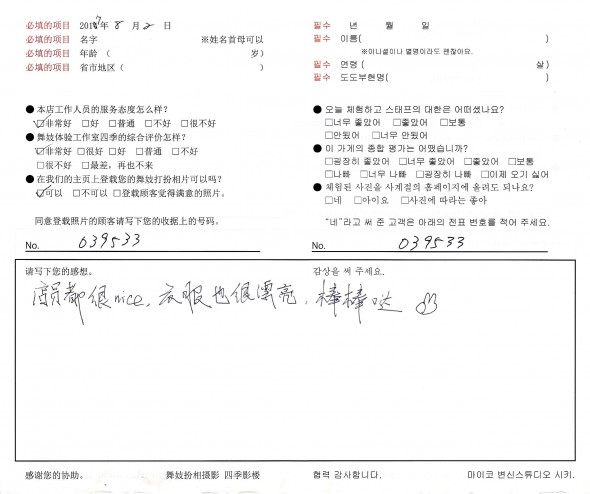 必填的项目 2017年 8 月 2 日
必填的项目 名字 ※姓名首母可以
必填的项目 年龄 ( 岁)
必填的项目 省市地区 ( )
●本店工作人员的服务态度怎么样?
☑非常好 □好 □普通 □不好 □很不好
●舞妓体验工作室四季的综合评价怎样?
☑非常好 □很好 □好 □普通 □不好
□很不好 □最差，再也不来
●在我们的主页上登载您的舞妓打扮相片可以吗?
☑可以 □不可以 □登载顾客觉得满意的照片。
同意登载照片的顾客请写下您的收据上的号码。
No. 039533
필수 년 월 일
필수 이름( )
※이니셜이나 별명이라도 괜찮아요.
필수 연령 ( 살)
필수 도도부현명( )
● 오늘 체험하고 스태프의 대한은 어떠셨나요?
□너무 좋았어 □좋았어 □보통
□안됬어 □너무 안됬어
● 이 가게의 종합 평가는 어땠습니까?
□굉장히 좋았어 □너무 좋았어 □좋았어 □보통
□나빠 □너무 나빠 □굉장히 나빠 □이제 오기 싫어
● 체험된 사진을 사계절의 홈페이지에 올려도 되나요?
□네 □아이요 □사진에 따라는 좋아
"네"라고 써 준 고객은 아래의 전표 번호를 적어 주세요.
No. 039533
请写下您的感想。 감상을 써 주세요.
店员都很nice，衣服也很漂亮，棒棒哒
感谢您的协助。 舞妓扮相摄影 四季影楼 협력 감사합니다. 마이코 변신스튜디오 시키.